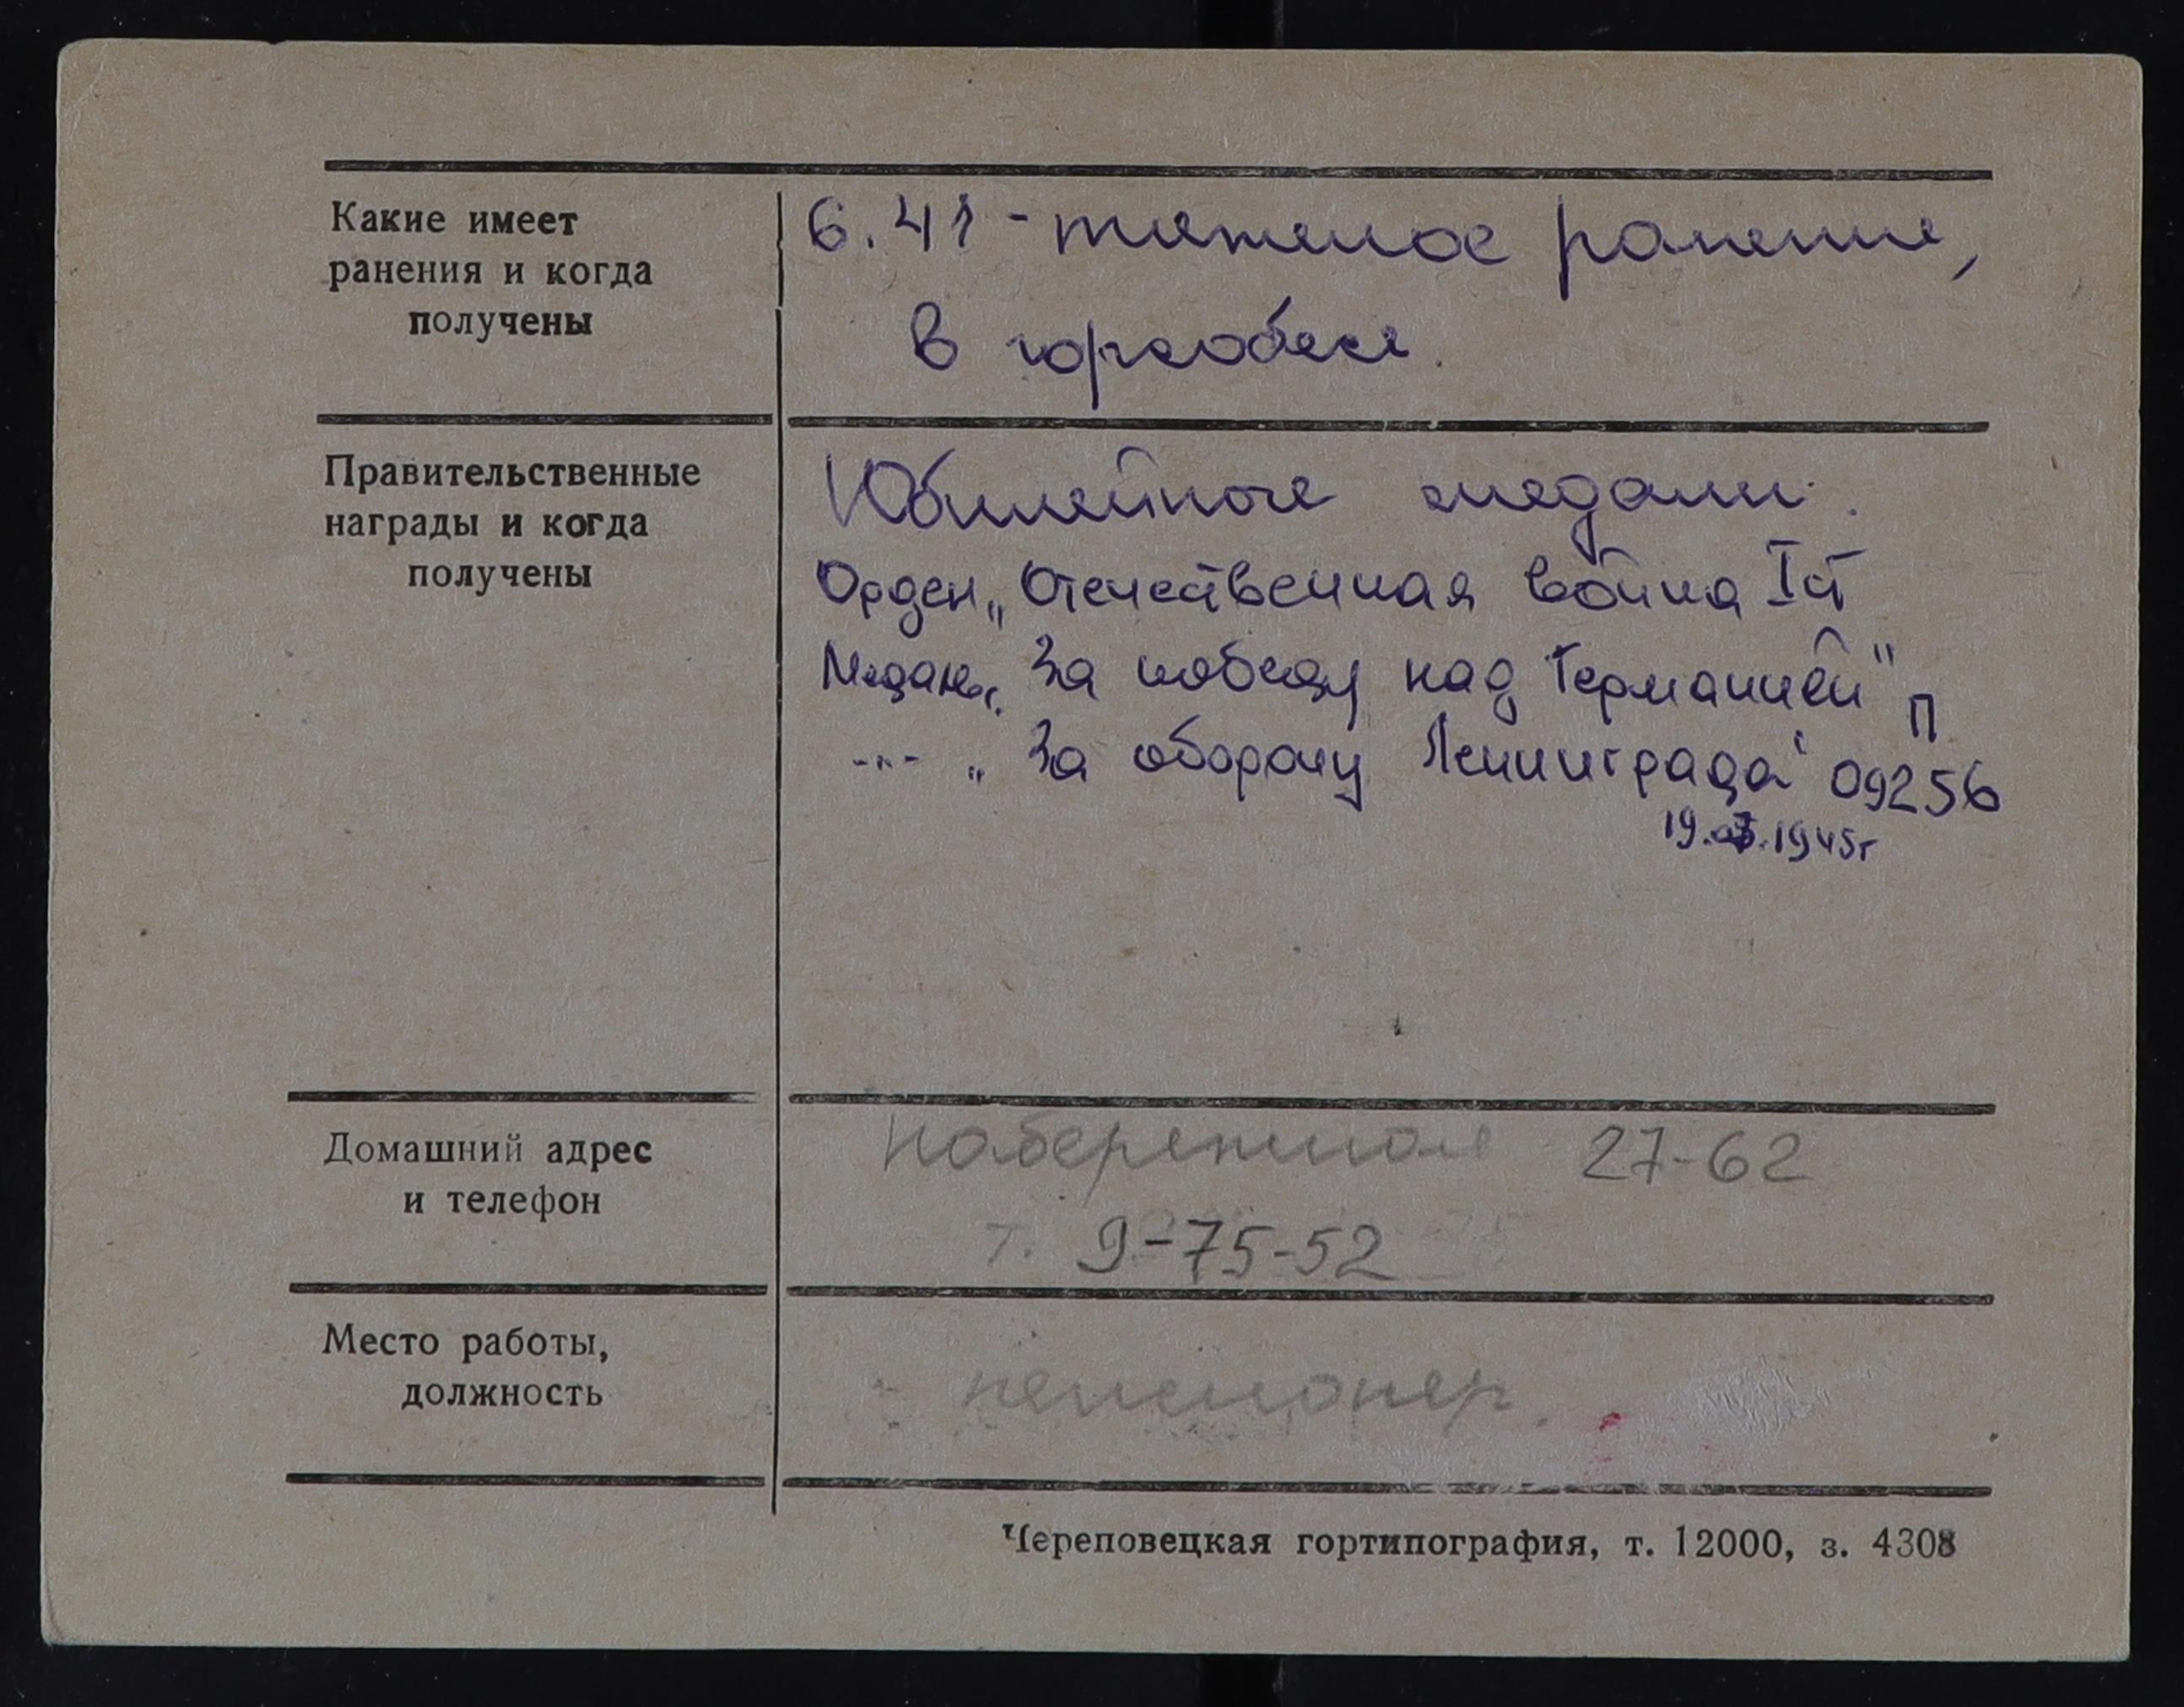 Какие имеет
ранения и когда
получены
6.41 - тяжелое ранение,
в горсобесе.
Правительственные
награды и когда
получены
Юбилейные медали.
Орден „Отечественная война I ст
Медаль „За победу над Германией"
--"-- „За оборону Ленинграда" П 09256
19.03.1945г
Домашний адрес
и телефон
Набережная 27-62
т. 9-75-52
Место работы,
должность
пенсионер.
Череповецкая гортипография, т. 12000, з. 4308